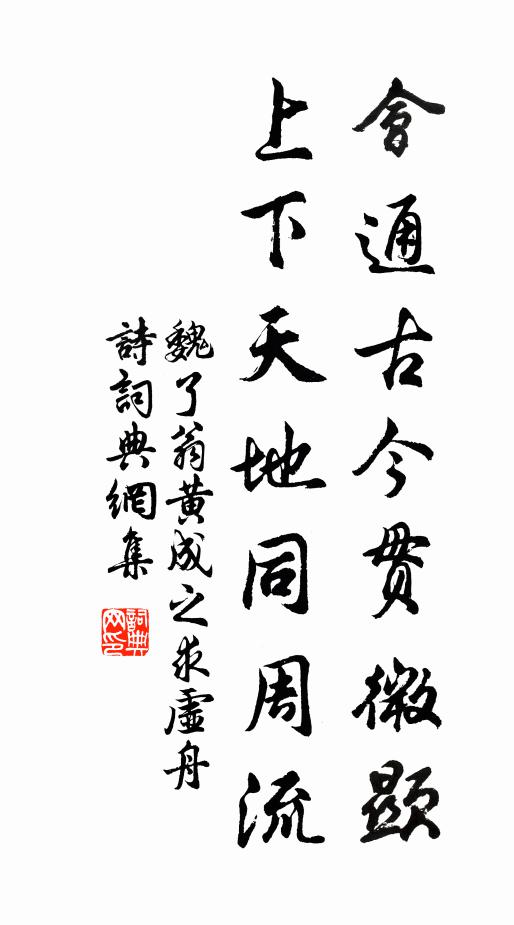 會通古今贯微顯
上下天地同周流
魏了翁黄成之求虛舟
詩詞典網集
詞典网印